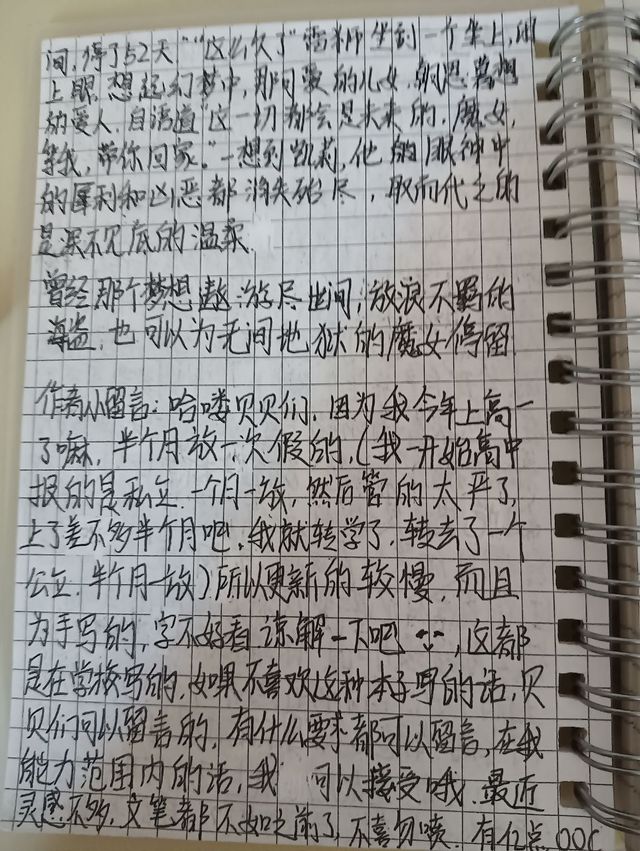 间,停了52天""这么久了"雷狮坐到一个坐上,闭
上眼,想起幻梦中,那可爱的儿女,朝思暮想
的爱人,自语道"这一切都会是未来的,魔女,
等我,带你回家。"一想到凯莉,他的眼神中
的犀利和凶恶都消失殆尽,取而代之的
是深不见底的温柔
曾经那个梦想遨游尽世间,放浪不羁的
海盗,也可以为无间地狱的魔女停留
作者小留言:哈喽贝贝们,因为我今年上高一
了嘛,半个月放一次假的,(我一开始高中
报的是私立,一个月一放,然后管的太严了,
上了差不多半个月吧,我就转学了,转去了一个
公立,半个月一放)所以更新的较慢,而且
为手写的,字不好看谅解一下吧,这都
是在学校写的,如果不喜欢这种本子写的话,贝
贝们可以留言的,有什么要求都可以留言,在我
能力范围内的话,我 可以接受哦.最近
灵感不多,文笔都不如之前了,不喜勿喷.有亿点OOC